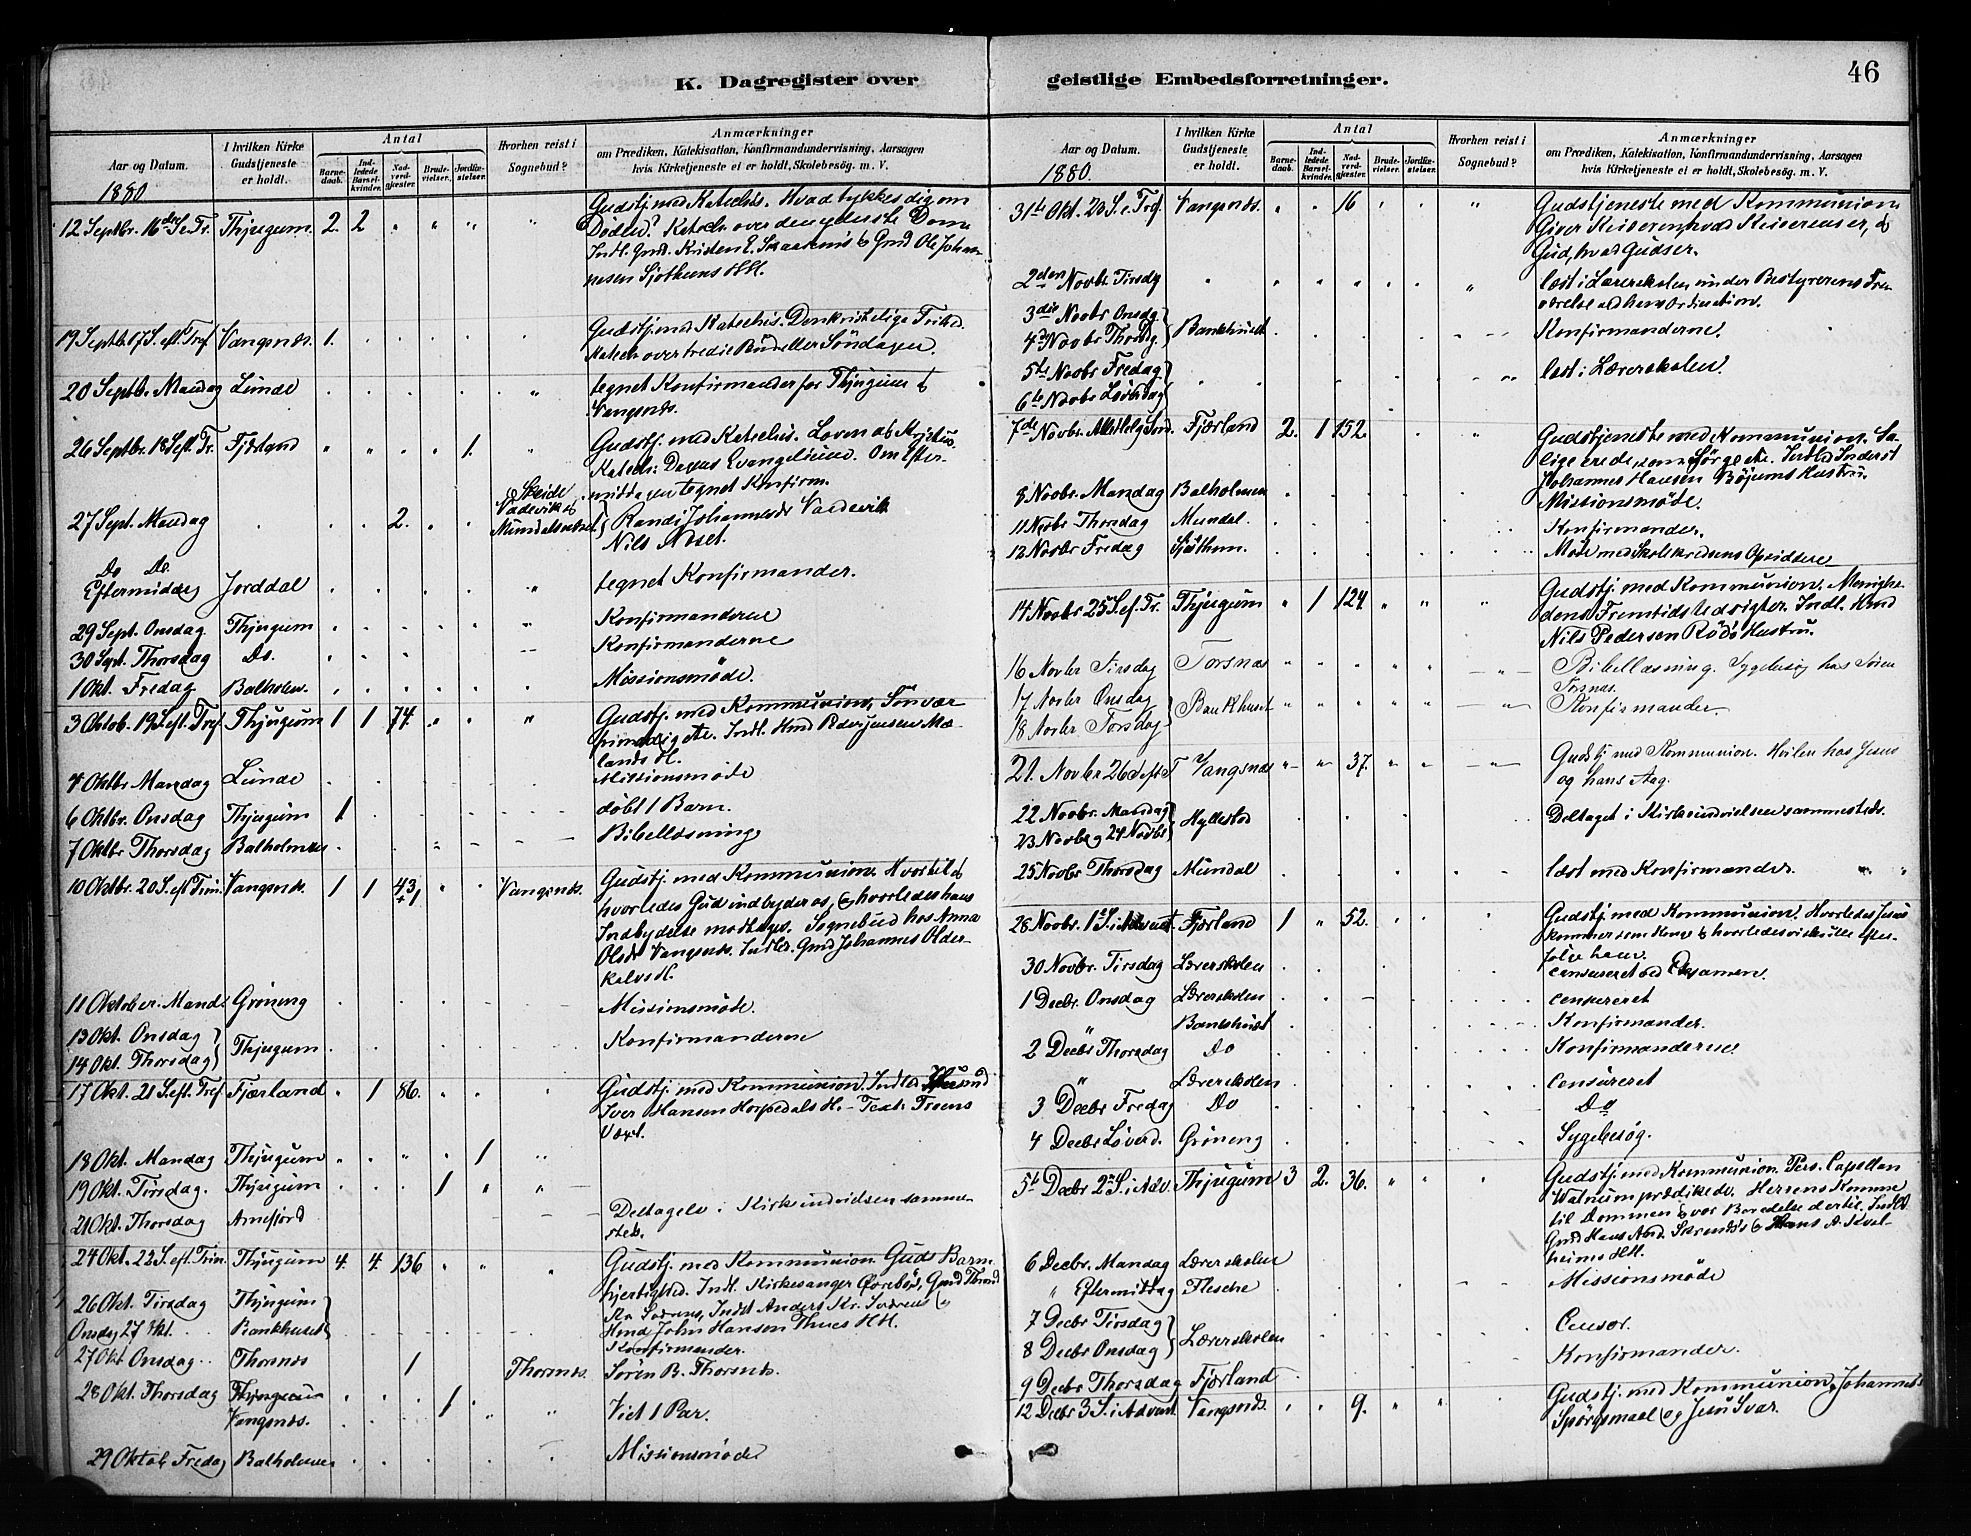 K. Dagregister over
Aar og Datum.
I hvilken Kirke Gudstjeneste er holdt.
Antal
Barnedaab.
Indledede Barselkvinder.
Nadverdgjester.
Brudevielser.
Jordfæstelser.
Hvorhen reist i Sognebud?
Anmærkninger
om Prædiken, Katekisation, Konfirmandundervisning, Aarsagen
hvis Kirketjeneste ei er holdt, Skolebesøg. m. V.
1880
Gudstj. med Katechis. Hvad tykkes dig om
12 Septbr. 16de S. e. Tr. Thjugum. 2. 2 Døden? Katech. over den yderste Dom.
Indl. Gmd. Kristen E. & Gmd Ole Johan-
nesen Sjøthuns HH.
Gudstj. med Katechis. Den kristelige Frihed.
19 Septbr. 17 S. eft. Tref. Vangsnæs. 1. Katech. over tredie Bud eller Søndagen.
20 Septbr. Mandag Lunde tegnet Konfirmander for Thjugum &
Vangsnæs.
26 Septbr. 18 S. eft. Tr. Fjærland 1. Gudstj. med Katechis. Loven og Kristus.
Katech: Dagens Evangelium. Om Efter-
middagen tegnet Konfirm.
27 Sept. Mandag 2. Skeide Vadevik & Mundalsnæset Randi Johannesdr Vaadevik
Nils Næset.
Do Do
Eftermiddag Jorddal tegnet Konfirmander.
29 Sept. Onsdag Thjugum Konfirmanderne
30 Sept. Thorsdag Do. Konfirmanderne
1 Okt. Fredag Balholm. Missionsmøde.
3 Oktob. 19 S. eft. Tref. Thjugum 1 1 74. Gudstj. med Kommunion,
Indl. Hmd Peder Jensen Mæ-
lands H.
4 Oktbr Mandag Lunde Missionsmøde
6 Oktbr. Onsdag Thjugum 1 døbt 1 Barn.
7 Oktbr Thorsdag Balholmen Bibellæsning
10 Oktbr. 20 S. eft Trin. Vangsnæs. 1 1 43+1 Vangsnæs. Gudstj. med Kommunion. Hvortil &
hvorledes Gud indbyder os, & hvorledes hans
Indbydelse modtages. Sognebud hos Anna
Olsdr Vangsnæs. Indled. Gmd Johannes Older-
11 Oktober. Mand. Grøneng Missionsmøde.
13 Okt. Onsdag
14 Okt. Thorsdag Thjugum Konfirmanderne
17 Okt. 21 S. eft. Tref. Fjærland 1 86. Gudstj. med Kommunion. Indled. Husmd
Iver Hansen Horpedals H. – Text: Troens
Væxt.
18 Okt. Mandag Thjugum 1
19 Okt. Tirsdag. Thjugum 1
21 Okt. Thorsdag Arnefjord Deltagelse i Kirkeindvielsen samme-
steds.
24 Okt. 22 S. eft. Trin. Thjugum 4. 4. 136 Gudstj. med Kommunion. Guds Barm-
hjertighed. Indl. Kirkesanger Gmd
Indst Anders Kr. &
Hmd John Hansen Thues HH.
26 Okt. Tirsdag Thjugum
Onsdag 27 Okt. Bankhuset Konfirmander.
27 Okt Onsdag Thorsnæs 1 Thorsnæs. Søren B. Thorsnæs.
28 Okt. Thorsdag Thjugum
Vangsnæs. 1 Viet 1 Par.
29 Oktob. Fredag Balholmen Missionsmøde
geistlige Embedsforretninger.
46
Aar og Datum.
I hvilken Kirke Gudstjeneste er holdt.
Antal
Barnedaab.
Indledede Barselkvinder.
Nadverdgjester.
Brudevielser.
Jordfæstelser.
Hvorhen reist i Sognebud?
Anmærkninger
om Prædiken, Katekisation, Konfirmandundervisning, Aarsagen
hvis Kirketjeneste ei er holdt, Skolebesøg. m. V.
1880.
31te Okt. 23 S. e. Tref. Vangsnæs. 16 Gudstjeneste med Kommunion
Giver Keiseren, hvad Keiserens er, &
Gud, hvad Guds er.
2den Novbr. Tirsdag læst i Lærerskolen under Bestyrerens Fra-
værelse ved hans Ordination.
3die Novbr Onsdg
4de Novbr Thorsdg. Bankhuset Konfirmanderne.
5te Novbr Fredag læst i Lærerskolen.
6te Novbr Løverdag
7de Novbr. Allehelg. Sønd. Fjærland 2. 1 152. Gudstjeneste med Kommunion. Sa-
lige ere de, som sørge etc. Indled Inderst
Johannes Hansen Bøjums Hustru.
8 Novbr. Mandag Balholmen Missionsmøde.
11 Novbr Thorsdag Mundal. Konfirmander.
12 Novbr Fredag Sjøthun. Møde med Skolekredsens Opsiddere
14 Novbr 25 S. ef. Tr. Thjugum 1 124 Gudstj. med Kommunion. Menighe-
dens Fremtidsudsigter. Indl. Hmd
Nils Pedersen Hustru.
16 Novbr Tirsdag Torsnæs Bibellæsning. Sygebesøg hos Søren
Torsnæs.
17 Novbr Onsdag
18 Novbr Torsdag Bankhuset Konfirmander.
21. Novbr 26 S eft T Vangsnæs 37. Gudstj med Kommunion. Hvilen hos Jesus
og hans Aag.
22 Novbr. Mandag
23 Novbr og 24 Novbr Hyllestad Deltaget i Kirkeindvielsen sammesteds.
25 Novbr Thorsdag Mundal læst med Konfirmander.
28 Novbr. 1 S. i Advent. Fjærland 1 52. Gudstj. med Kommunion. Hvorledes Jesus
kommer som Konge & hvorledes vi skulle efter-
følge ham.
30 Novbr. Tirsdag Lærerskolen censureret ved Examen.
1 Decbr. Onsdag Lærerskolen censureret
Bankhuset Konfirmander.
2 Decbr Thorsdag Do Konfirmanderne
" Lærerskolen Censureret
3 Decbr Fredag Do Do
4 Decbr Løverd. Grøneng Sygebesøg.
5te Decbr 2 S. i Adv. Thjugum 3 2. 36. Gudstj. med Kommunion. Pers. Capellan
Watnum prædikede. Herrens Komme
til Dommen & vor Beredelse dertil. Indled
Gmd Hans And. & Hans A. Kvel-
heims HH.
6 Decbr. Mandag Lærerskolen
" Eftermittag Flesche Missionsmøde
7 Decbr Tirsdag
8 Decbr Onsdag Lærerskolen Censor.
9 Decbr Thorsdag Fjærland Konfirmander.
12 Decbr 3 S. i Advent Vangsnæs. 9. Gudstj. med Kommunion, Johannes's
Spørgsmaal og Jesu Svar.